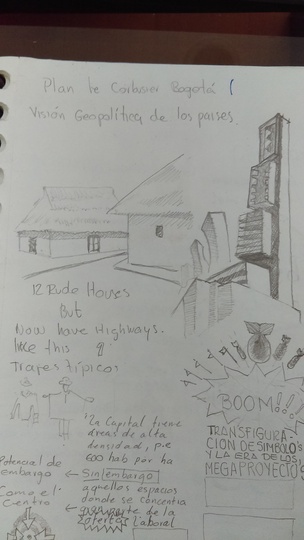 Plan Le Corbusier Bogotá (
Visión Geopolítica de los países.
12 Rude Houses
But
Now have Highways.
like this
Trajes típicos
"La Capital tiene
áreas de alta
densidad, p.e
600 hab por ha
Sin embargo
aquellos espacios
donde se concentra
parte de la
Laboral
Potencial de
embargo
Como el
Centro
BOOM!!!
TRANSFIGURA-
CION DE SIMBOLO'S
Y LA ERA DE LOS
MEGAPROYECTO'S